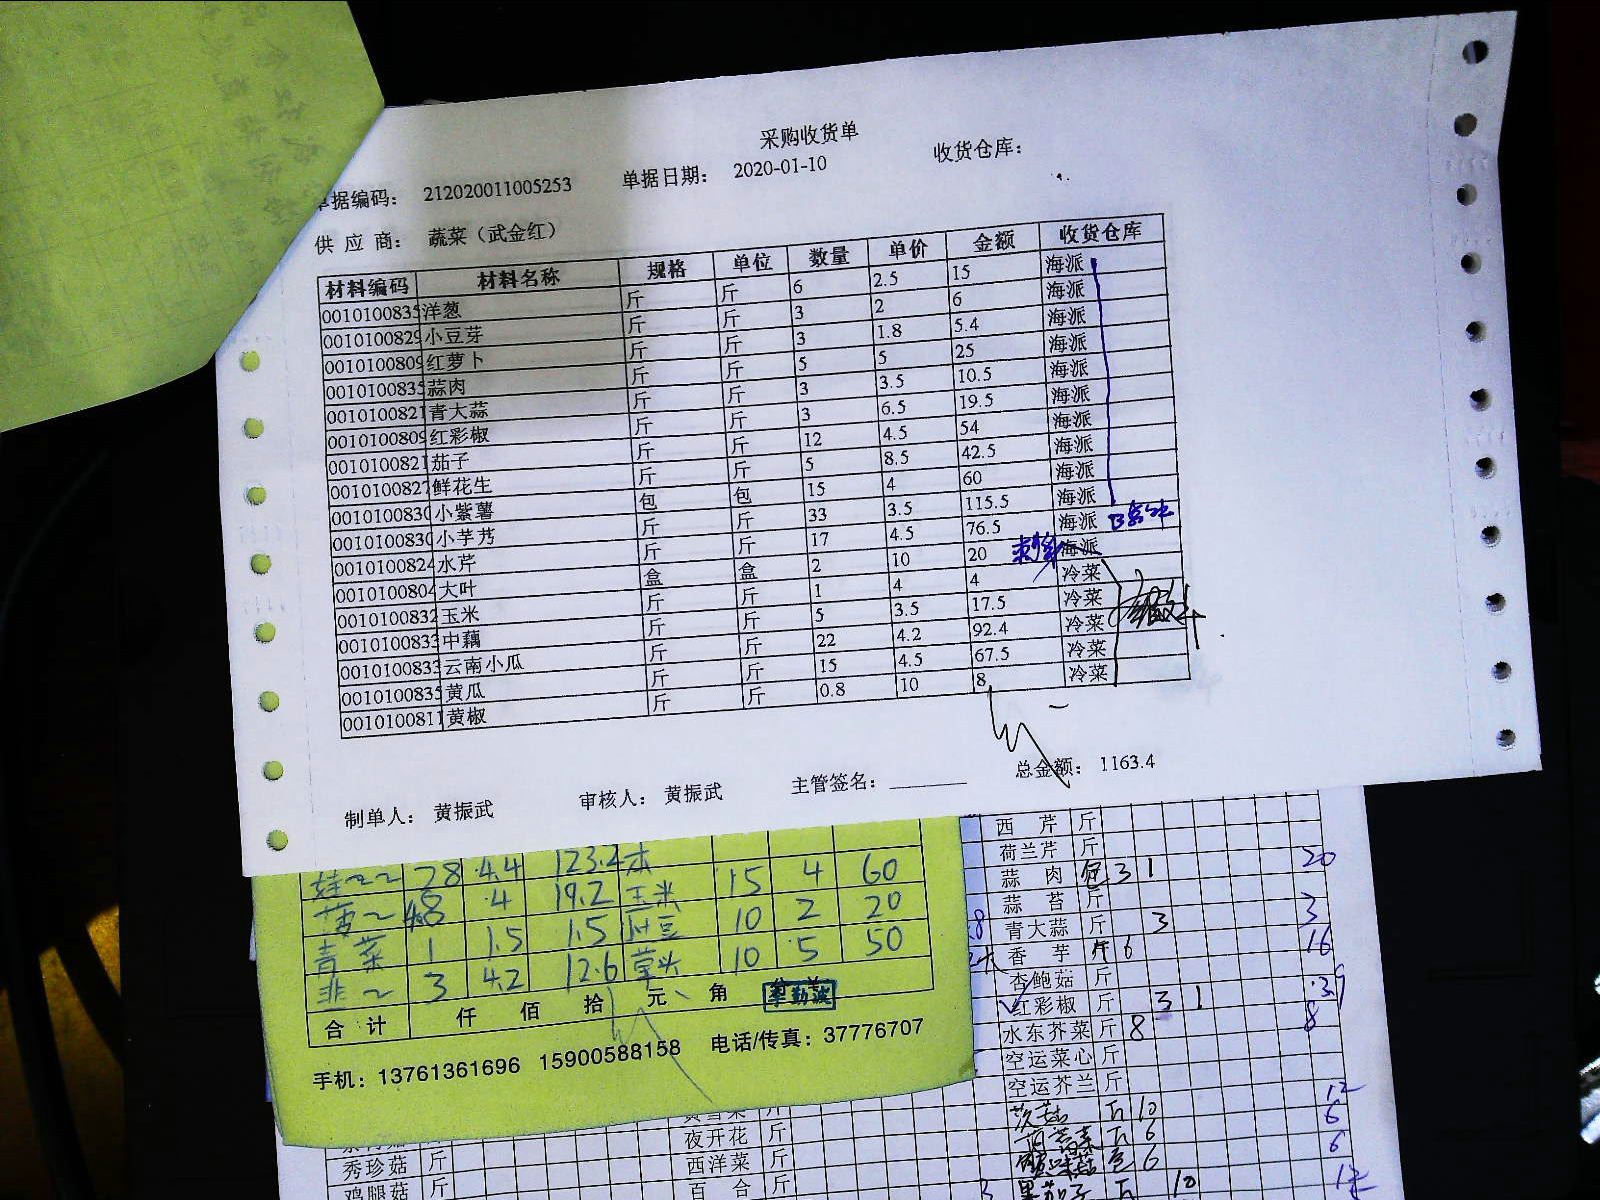 采购收货单
单据编码： 212020011005253 单据日期： 2020-01-10 收货仓库：
供 应 商： 蔬菜（武金红）
材料编码 材料名称 规格 单位 数量 单价 金额 收货仓库
0010100835 洋葱 斤 斤 6 2.5 15 海派
0010100829 小豆芽 斤 斤 3 2 6 海派
0010100809 红萝卜 斤 斤 3 1.8 5.4 海派
0010100835 蒜肉 斤 斤 5 5 25 海派
0010100821 青大蒜 斤 斤 3 3.5 10.5 海派
0010100809 红彩椒 斤 斤 3 6.5 19.5 海派
0010100821 茄子 斤 斤 12 4.5 54 海派
0010100827 鲜花生 斤 斤 5 8.5 42.5 海派
0010100830 小紫薯 包 包 15 4 60 海派
0010100830 小芋艿 斤 斤 33 3.5 115.5 海派
0010100824 水芹 斤 斤 17 4.5 76.5 海派
0010100804 大叶 盒 盒 2 10 20 海派
0010100832 玉米 斤 斤 1 4 4 冷菜
0010100833 中藕 斤 斤 5 3.5 17.5 冷菜
0010100833 云南小瓜 斤 斤 22 4.2 92.4 冷菜
0010100835 黄瓜 斤 斤 15 4.5 67.5 冷菜
0010100811 黄椒 斤 斤 0.8 10 8 冷菜
制单人： 黄振武 审核人： 黄振武 主管签名： 总金额： 1163.4
娃 28 4.4 123.2 本
菠 48 4 19.2 玉米 15 4 60
青菜 1 1.5 1.5 10 2 20
韭 3 4.2 12.6 10 5 50
合 计 仟 佰 拾 元 角
手机：13761361696 15900588158 电话/传真：37776707
西 芹 斤
荷兰芹 斤
蒜 肉 包 3 1 20
蒜 苔 斤
青大蒜 斤 3 3
香 芋 斤 6 16
杏鲍菇 斤
红彩椒 斤 3 1
水东芥菜 斤 8 8
空运菜心 斤
空运芥兰 斤
斤 10 12
斤 6 6
包 6 6
夜开花 斤
西洋菜 斤
百 合 斤
秀珍菇 斤
鸡腿菇 斤